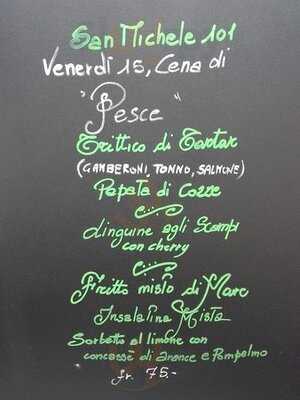 San Michele 101
Venerdì 15, Cena di
"Pesce"
Trittico di Tartar
(GAMBERONI, TONNO, SALMONE)
Pepata di Cozze
Linguine agli Scampi
con cherry
Fritto misto di Mare
Insalatina Mista
Sorbetto al limone con
concassè di arance e Pompelmo
fr. 75.-